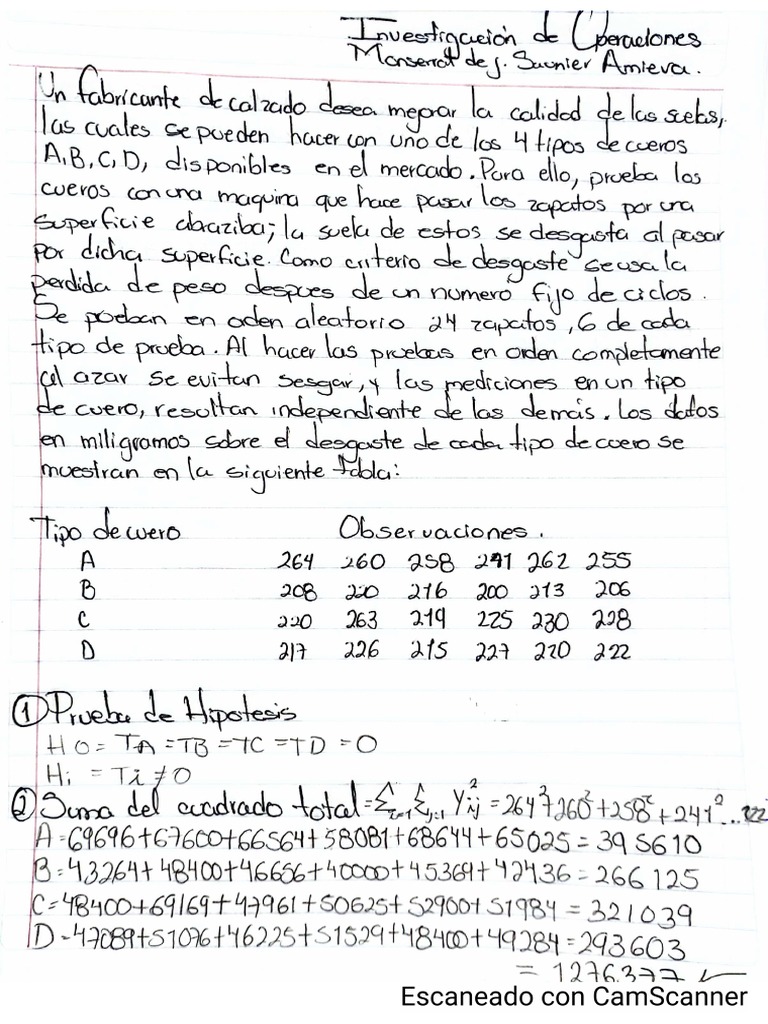 Investigación de Operaciones
Monserrat de J. Saunier Amieva.
Un fabricante de calzado desea mejorar la calidad de las suelas,
las cuales se pueden hacer con uno de los 4 tipos de cueros
A, B, C, D, disponibles en el mercado. Para ello, prueba los
cueros con una maquina que hace pasar los zapatos por una
superficie abraziba; la suela de estos se desgasta al pasar
por dicha superficie. Como criterio de desgaste se usa la
perdida de peso despues de un numero fijo de ciclos.
Se prueban en orden aleatorio 24 zapatos, 6 de cada
tipo de prueba. Al hacer las pruebas en orden completamente
al azar se evitan sesgar, y las mediciones en un tipo
de cuero, resultan independiente de las demás. Los datos
en miligramos sobre el desgaste de cada tipo de cuero se
muestran en la siguiente tabla:
Tipo de cuero Observaciones.
A 264 260 258 241 262 255
B 208 220 216 200 213 206
C 220 263 219 225 230 228
D 217 226 215 227 220 222
① Prueba de Hipotesis
H0 = TA = TB = TC = TD = 0
Hi = Ti ≠ 0
② Suma del cuadrado total = Σi=1 Σj=1 Yij² = 264²+260²+258²+241²...222
A = 69696+67600+66564+58081+68644+65025 = 395610
B = 43264+48400+46656+40000+45369+42436 = 266125
C = 48400+69169+47961+50625+52900+51984 = 321039
D = 47089+51076+46225+51529+48400+49284 = 293603
= 1276377
Escaneado con CamScanner